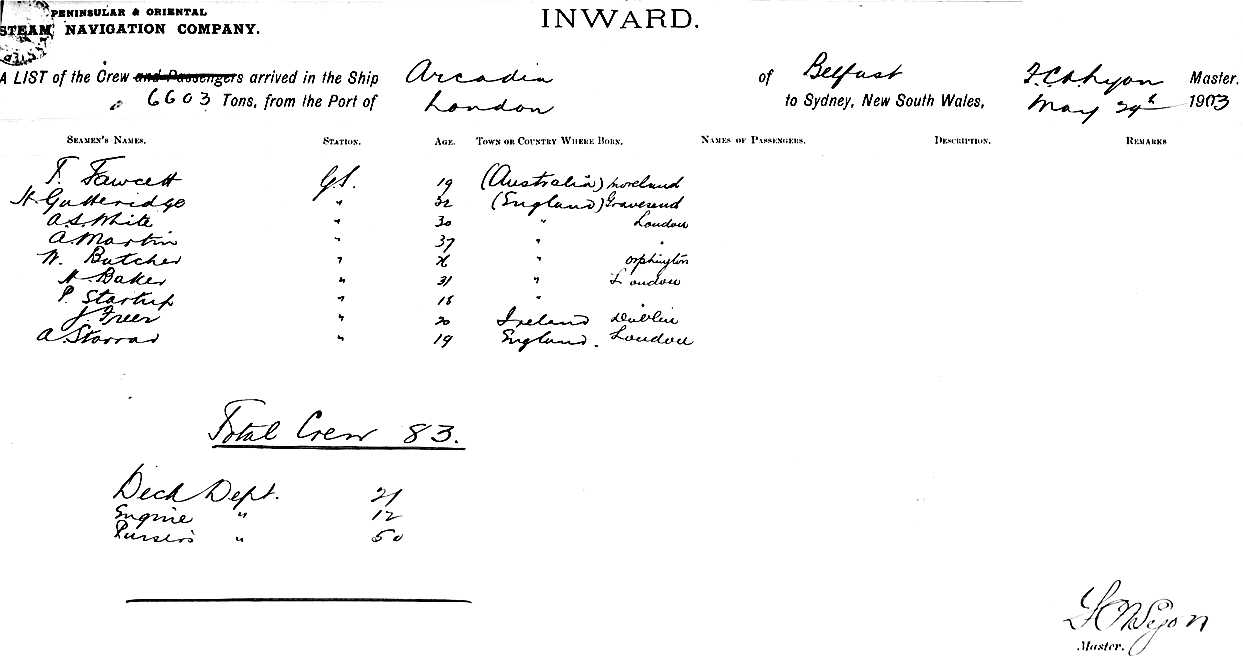 PENINSULAR & ORIENTAL
STEAM NAVIGATION COMPANY.
INWARD.
A LIST of the Crew and Passengers arrived in the Ship Arcadia of Belfast Master.
6603 Tons, from the Port of London to Sydney, New South Wales, May 29th 1903
SEAMEN'S NAMES. STATION. AGE. TOWN OR COUNTRY WHERE BORN. NAMES OF PASSENGERS. DESCRIPTION. REMARKS
T. Fawcett G.S. 19 (Australia) Moreland
H. Gutteridge " 32 (England) Gravesend
A.S. White " 30 " London
A. Martin " 37 " "
W. Butcher " 26 " Orphington
H. Baker " 31 " London
P. Startup " 18 "
J. Freer " 20 Ireland Dublin
A. Storrar " 19 England. London
Total Crew 83.
Deck Dept. 21
Engine " 12
Purser's " 50
Master.